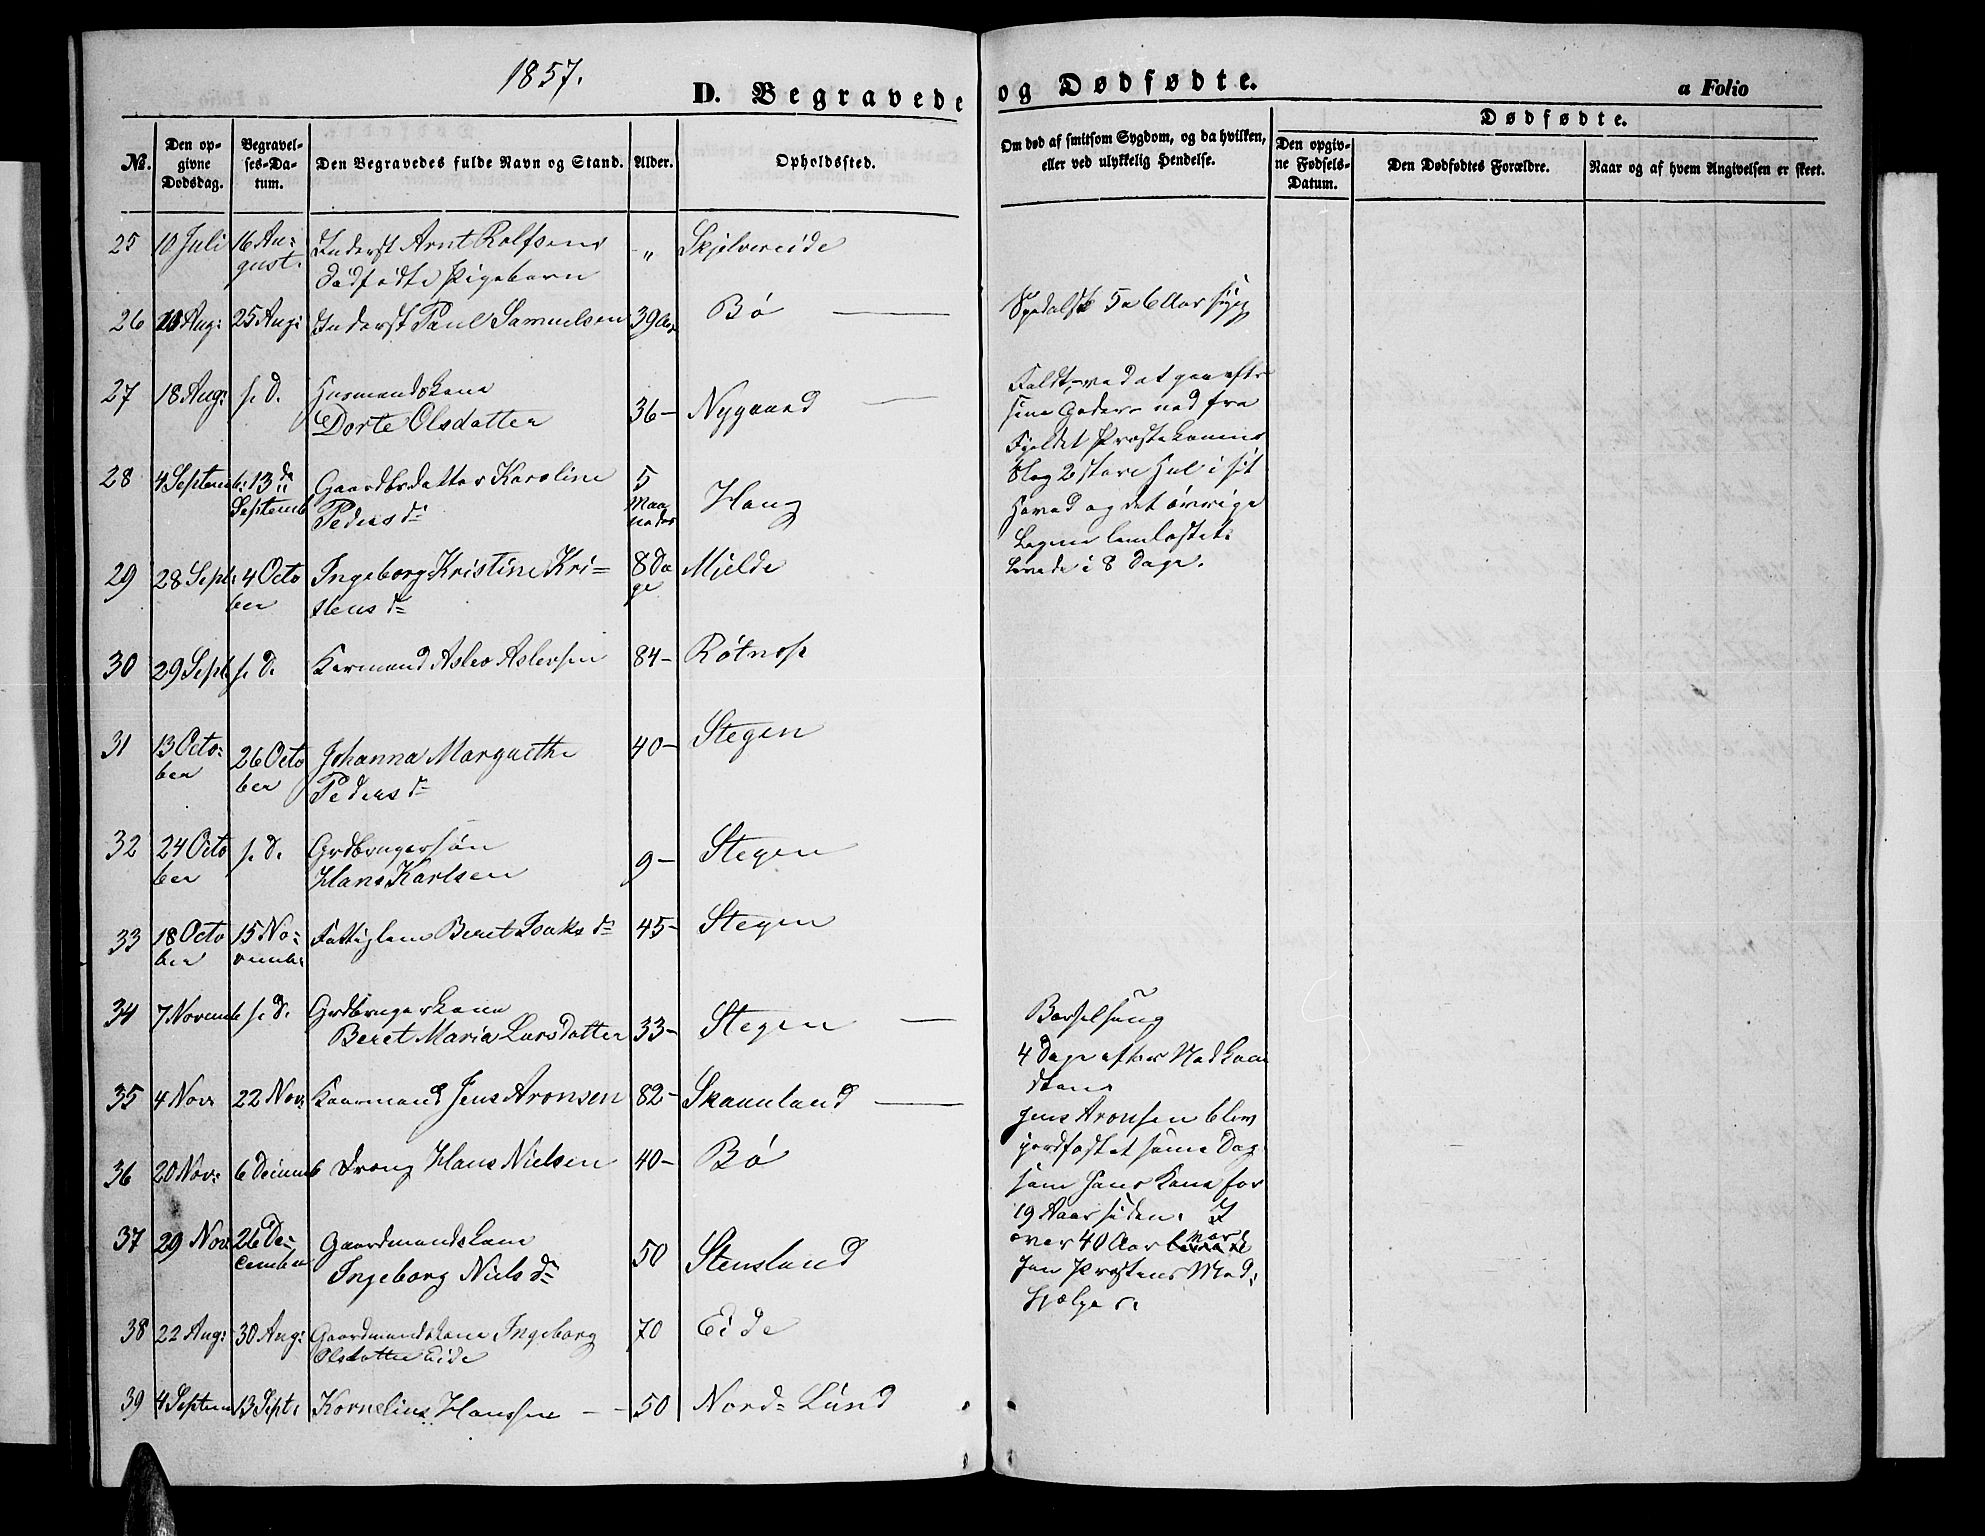 1857.
D. Begravede og Dødfødte.
a Folio
No.
Den opgivne Dødsdag.
Begravelses-Datum.
Den Begravedes fulde Navn og Stand.
Alder.
Opholdssted.
Om død af smitsom Sygdom, og da hvilken, eller ved ulykkelig Hendelse.
Dødfødte.
Den opgivne Fødsels-Datum.
Den Dødfødtes Forældre.
Naar og af hvem Angivelsen er skeet.
25 10 Juli 16 August. Inderst Arnt Rolfsens " Skjelvereide
dødfødte Pigebarn
26 Aug: 25 Aug: Inderst Paul Samuelsen 39 Aar Bø
Spedalsk 5 a 6 Aar syg
27 18 Aug: s. d. Husmandskone
Dorte Olsdatter 36 Nygaard
Faldt, ved at gaa efter
sine Geder ned fra
Fjeldet Præstekonens
Slog 2 store Hul i sit
Hoved og det øvrige
Legeme lemlæstet.
Levede i 8 Dage.
28 4 Septemb: 13d: Septemb Gaardbrdatter Karoline
Pedersd: 5 Maaneder Haug
29 28 Sept: 4 October Ingeborg Kristine Kri=
stensd: 8 Dage Mjelde
30 29 Sept: s. d. Kaarmand Aslev Aslevsen 84 Røtnæs
31 13 October 26 October Johanna Margrethe
Pedersd: 40 Stegen
32 24 October s. d. Grdbrugersøn
Hans Karlsen 9 Stegen
33 18 October 15 Novemb: Fattiglem Beret Isaksd: 45 Stegen
34 7 Novemb s. d. Grdbrugerkone
Beret Maria Larsdatter 33 Stegen
Barselseng
4 Dage efter Nedkom
sten
35 4 Nov: 22 Nov: Kaarmand Jens Aronsen 82 Skaanland
Jens Aronsen blev
jordfæstet samme Dag
som hans Kone for
19 Aar siden. I
over 40 Aar var
han Præstens Med=
hjelper.
36 20 Nov: 6 Decemb Dreng Hans Nielsen 40 Bø
37 29 Nov: 26 December Gaardmandskone
Ingeborg Nielsd: 50 Stensland
38 22 Aug: 30 Aug: Gaardmandskone Ingeborg
Olsdatter Eide 70 Eide
39 4 Septem 13 Sept: Kornelius Hanssen 50 Nord=Lund